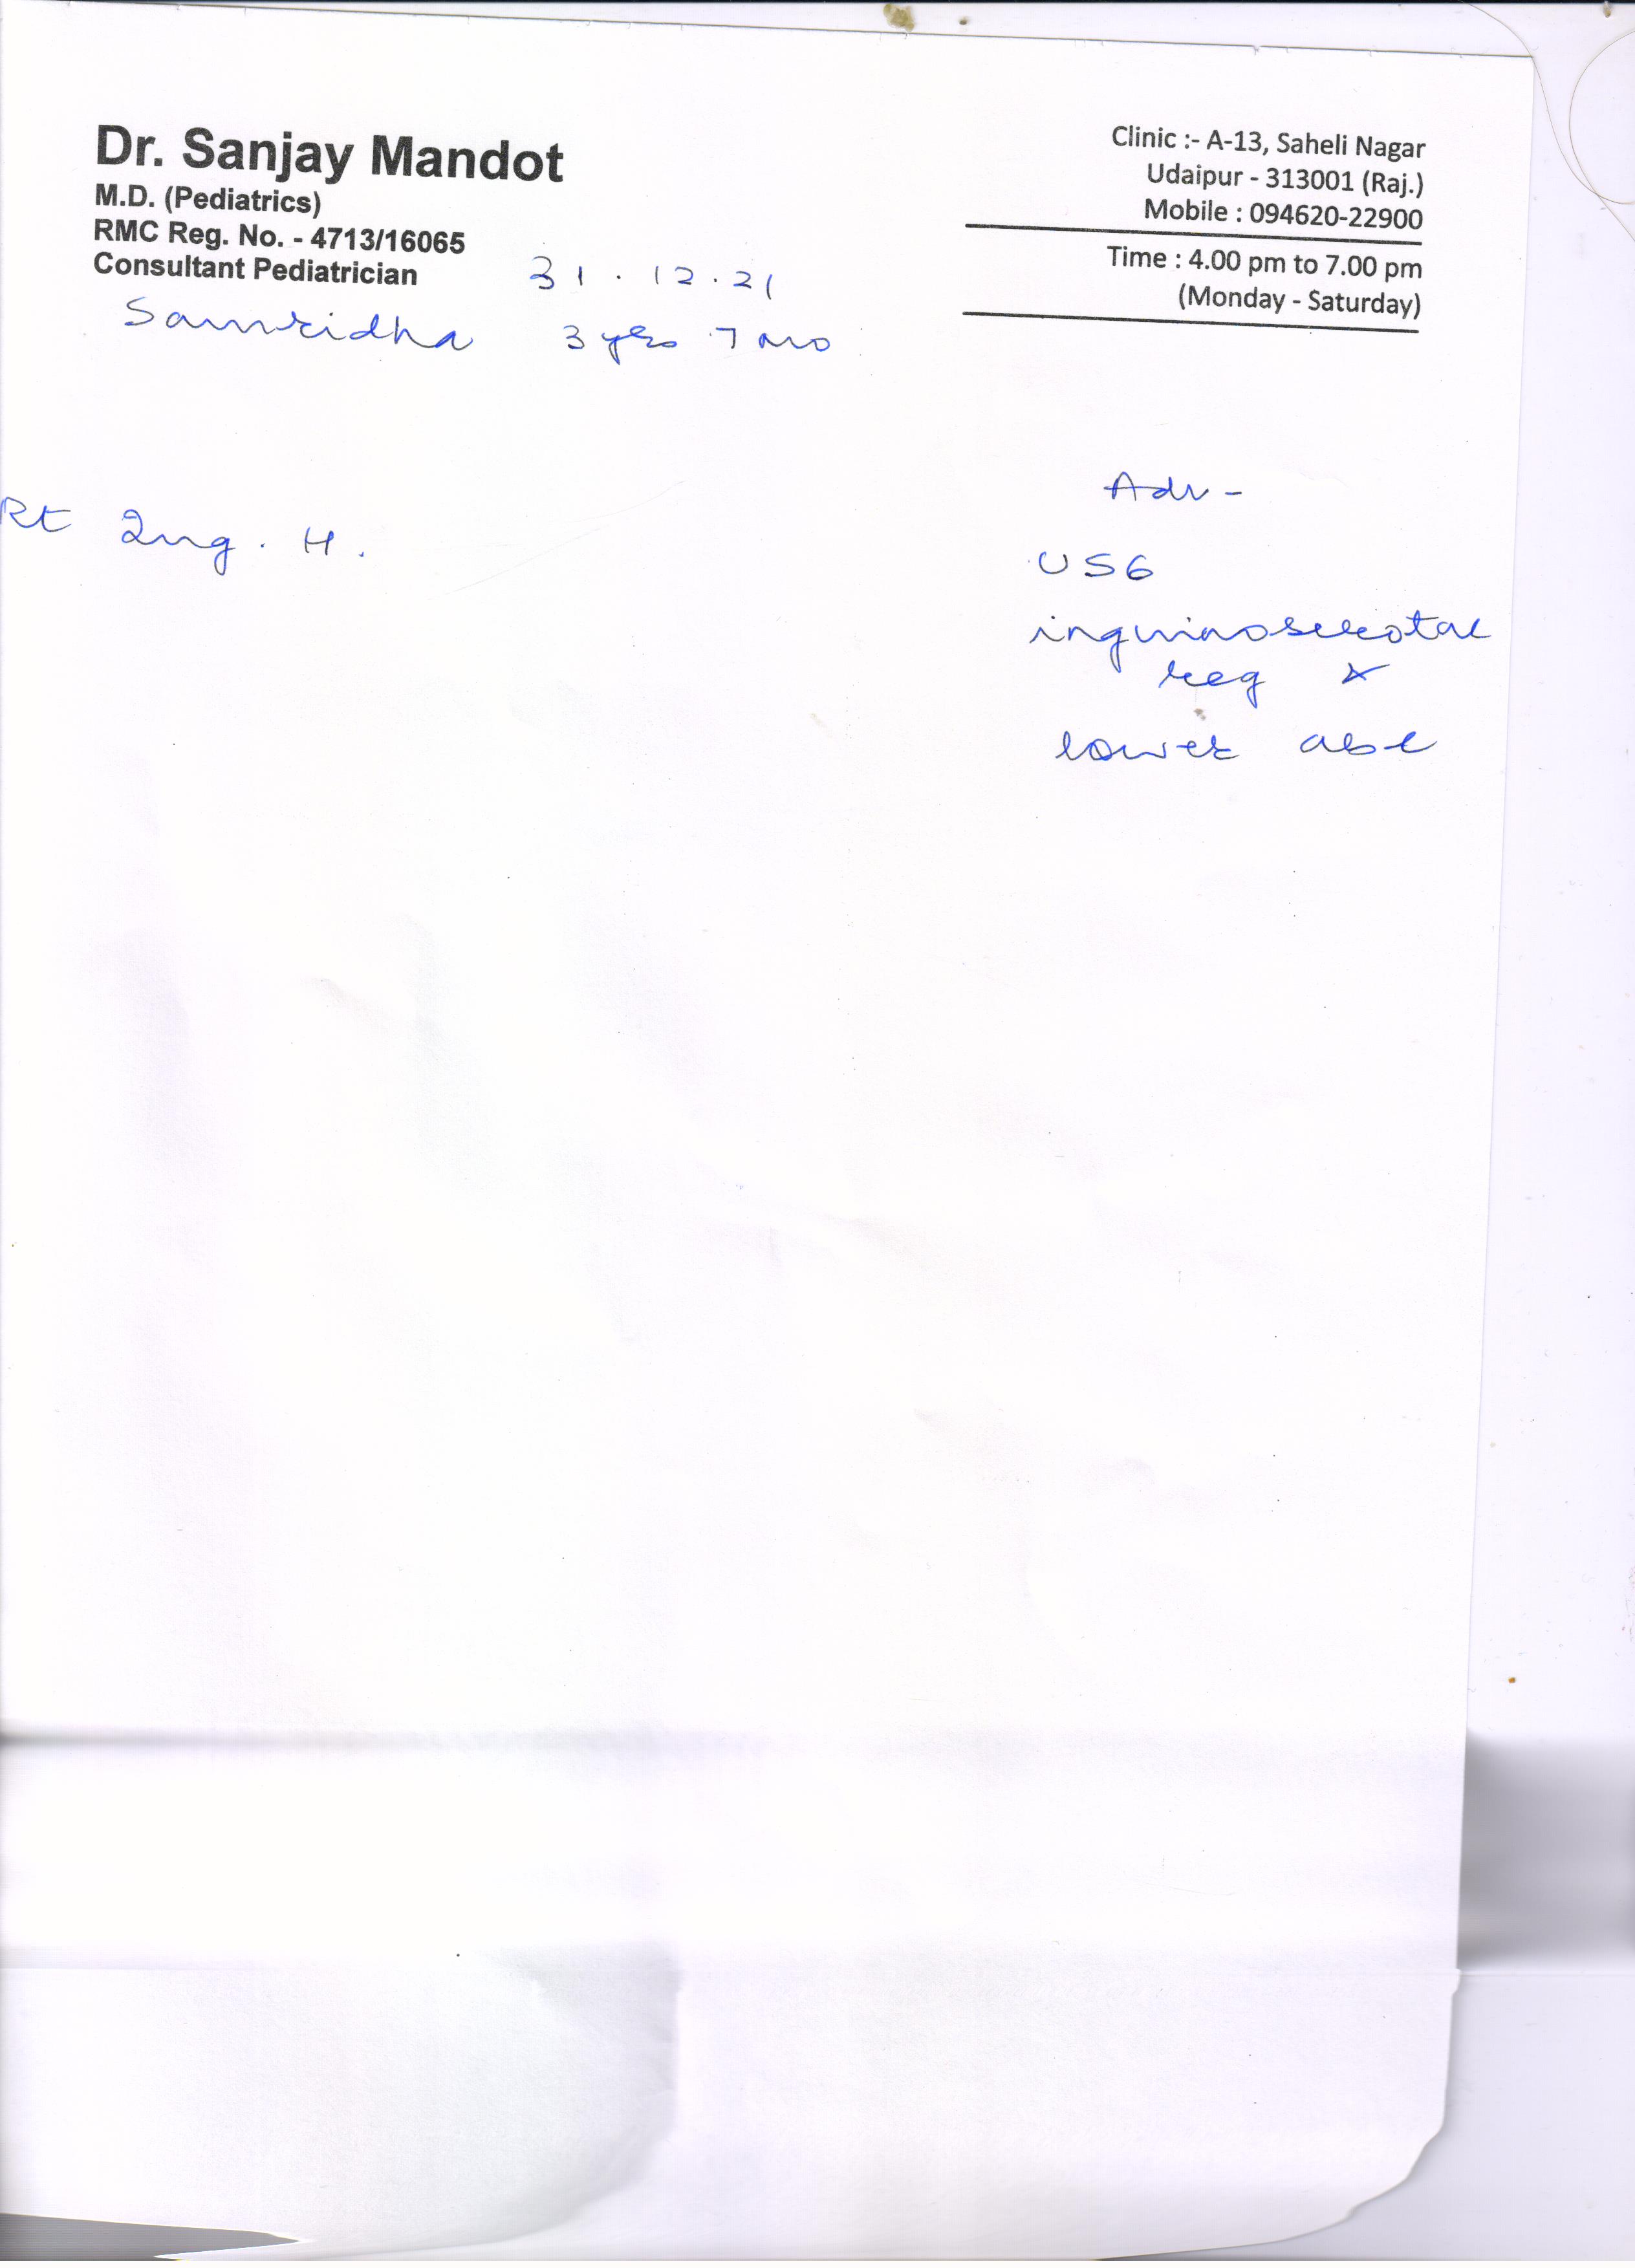 Dr. Sanjay Mandot
M.D. (Pediatrics)
RMC Reg. No. - 4713/16065
Consultant Pediatrician
Clinic :- A-13, Saheli Nagar
Udaipur - 313001 (Raj.)
Mobile : 094620-22900
Time : 4.00 pm to 7.00 pm
(Monday - Saturday)
31.12.21
Samridha 3 yrs 7 mo
Rt Ing. H.
Adv -
USG
inguinoscrotal
reg &
lower abd